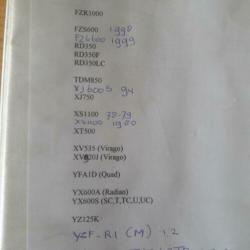 FZR1000
FZS600 1998
FZS600 1999
RD350
RD350F
RD350LC
TDM850
XJ600S 94
XJ750
XS1100 78-79
XS1100 1980
XT500
XV535 (Virago)
XV920J (Virago)
YFA1D (Quad)
YX600A (Radian)
YX600S (SC,T,TC,U,UC)
YZ125K
YZF-R1 (M) 1.2